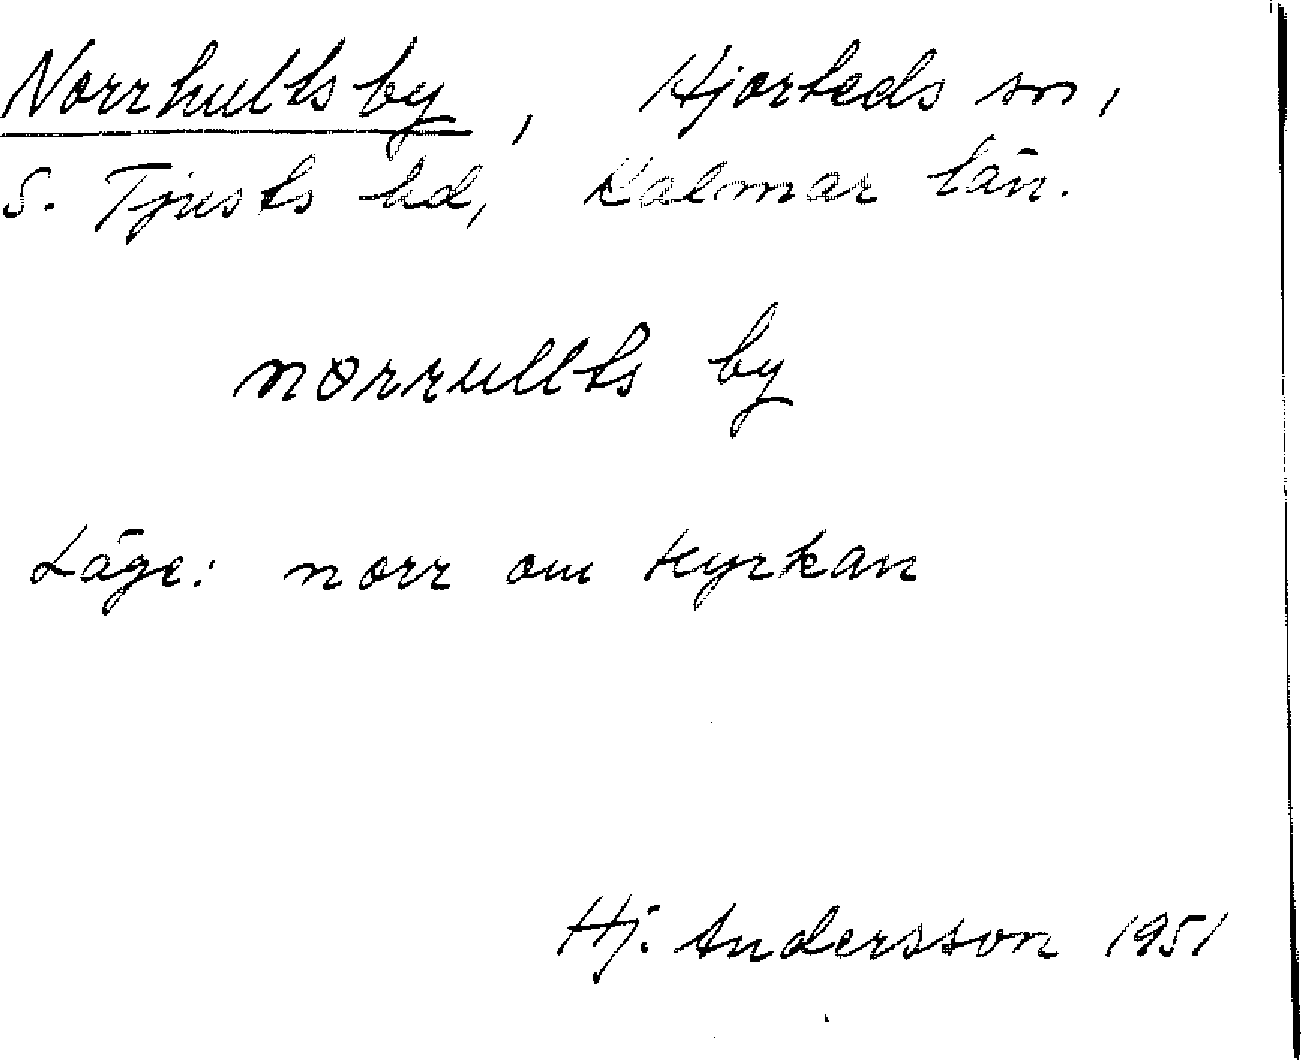 Norrhults by, Hjorteds sn,
S. Tjusts hd, Kalmar län.
nørrullts by
Läge: norr om kyrkan
Hj. Andersson 1951